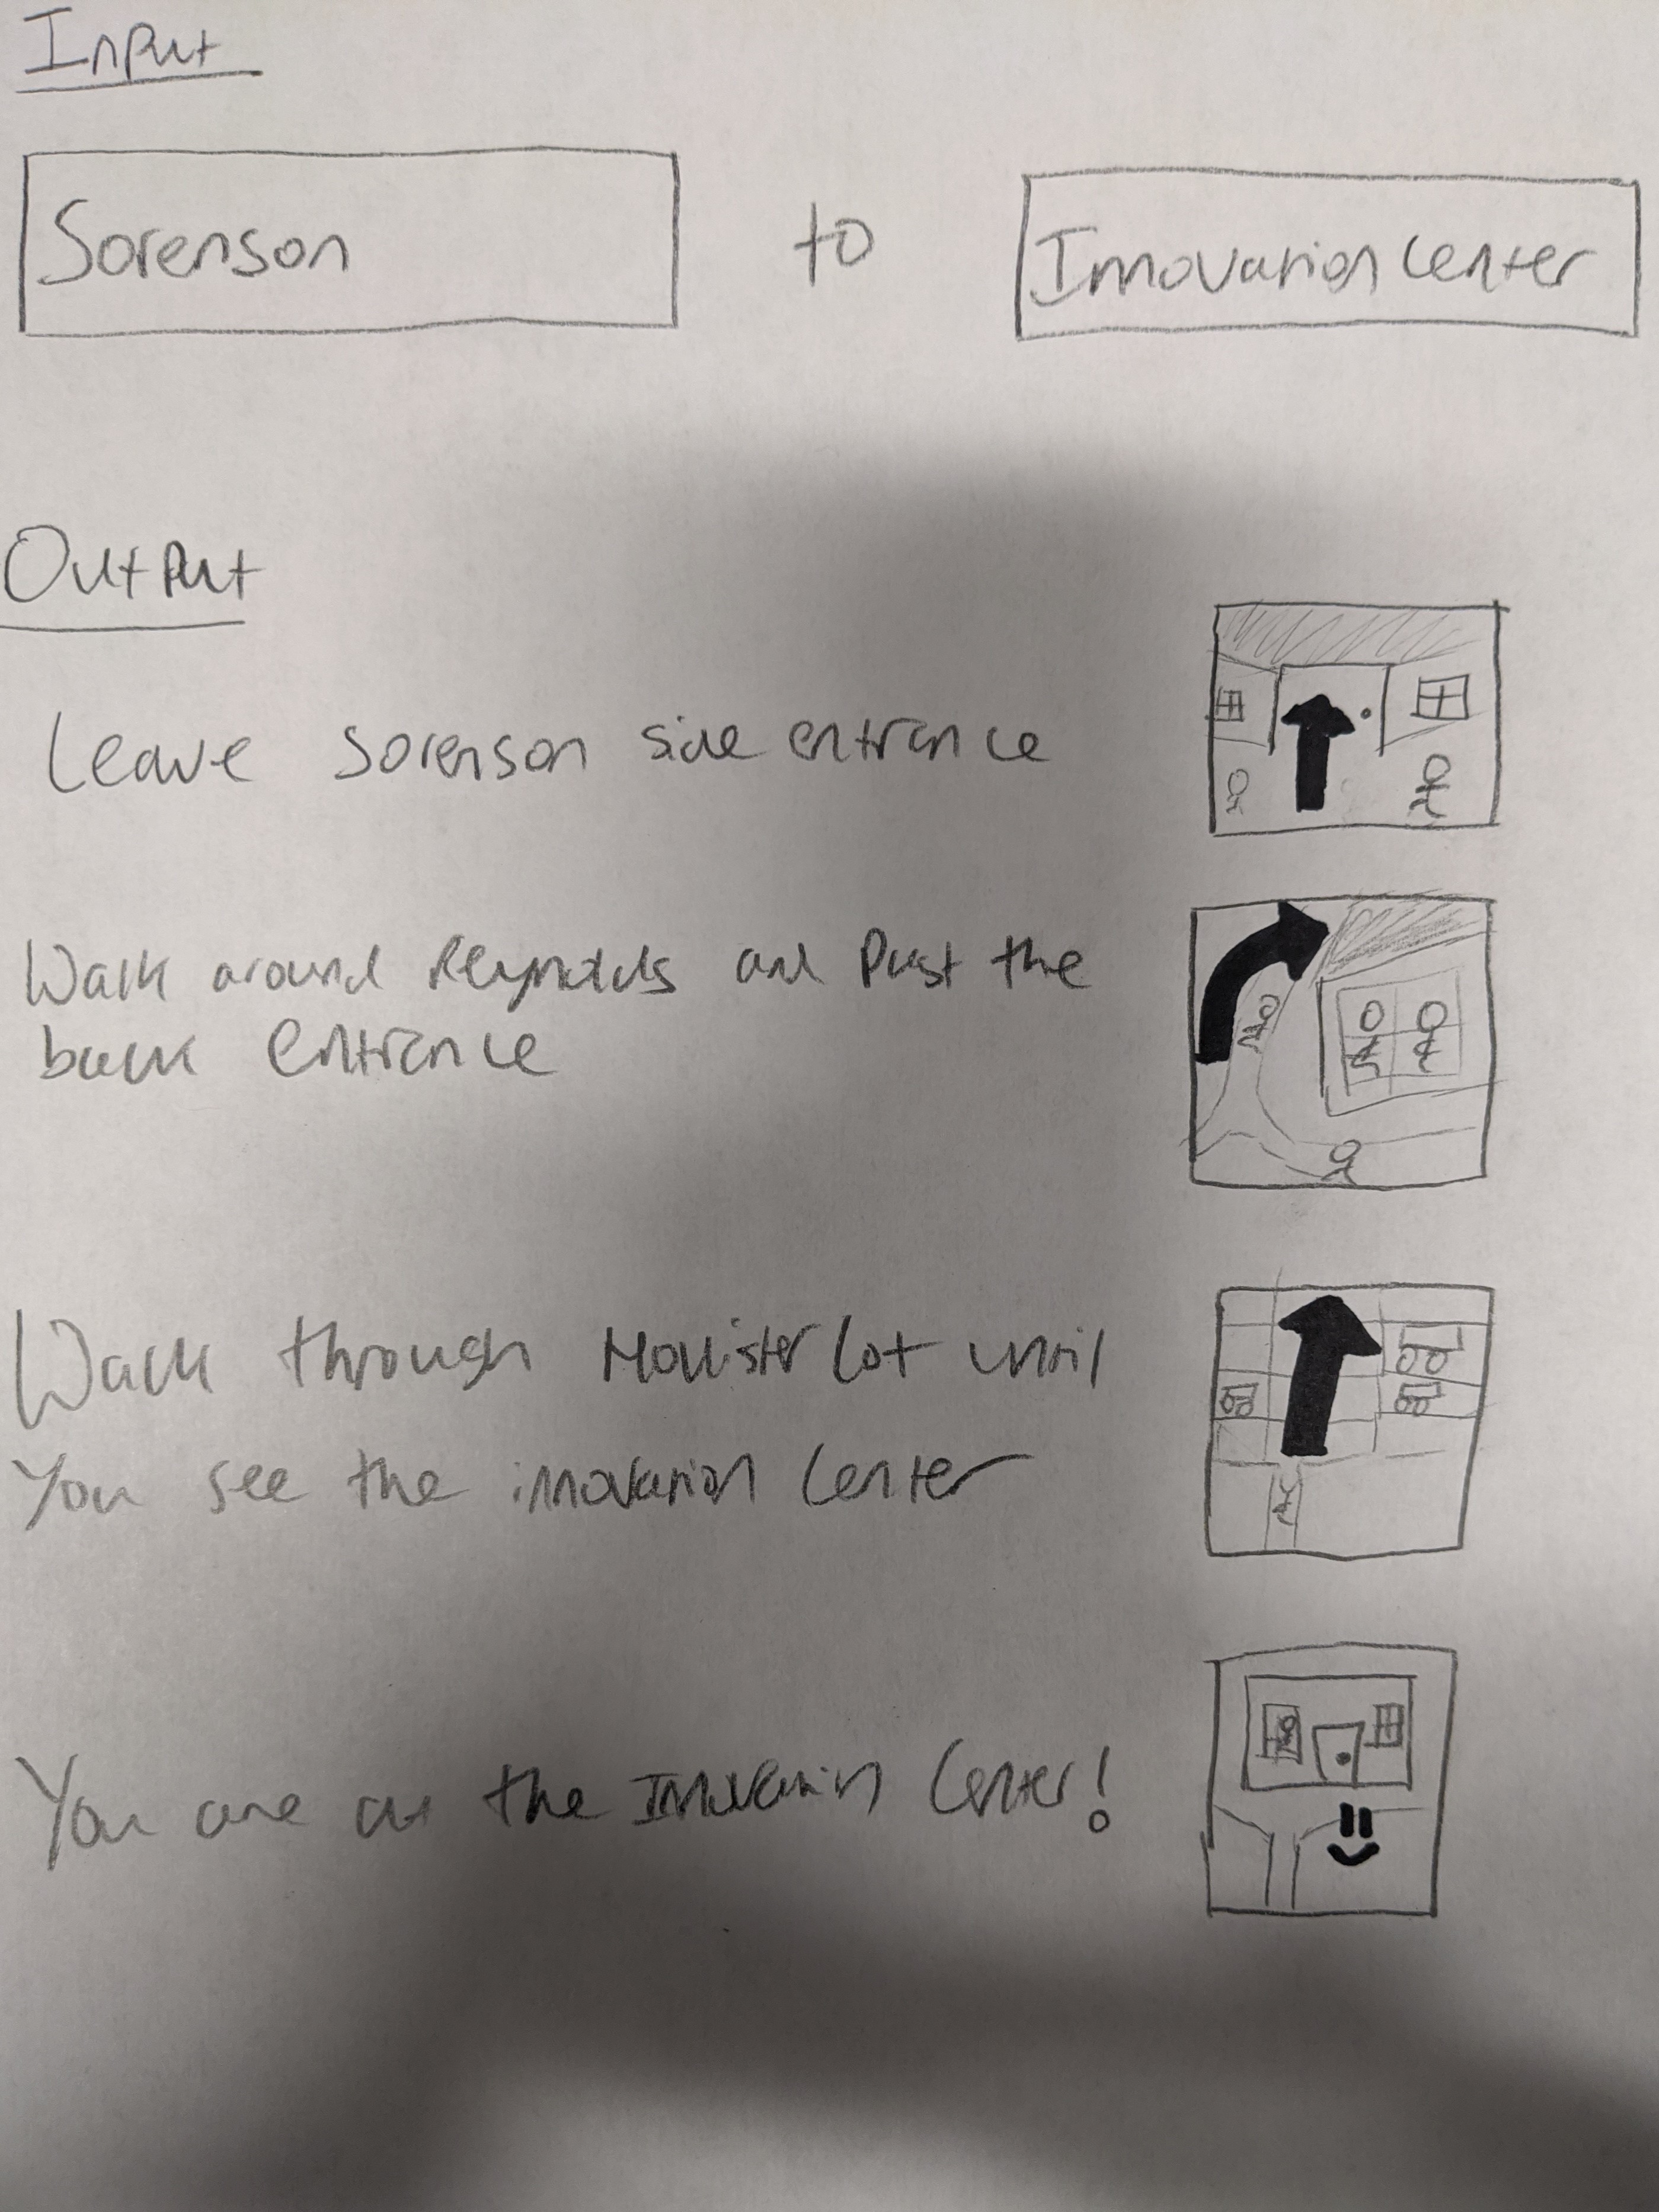 Input
Sorenson to Innovation Center
Output
Leave Sorenson side entrance
Walk around Reynolds and Past the
back entrance
Walk through Hollister Lot until
You see the innovation Center
You are at the Innovation Center!